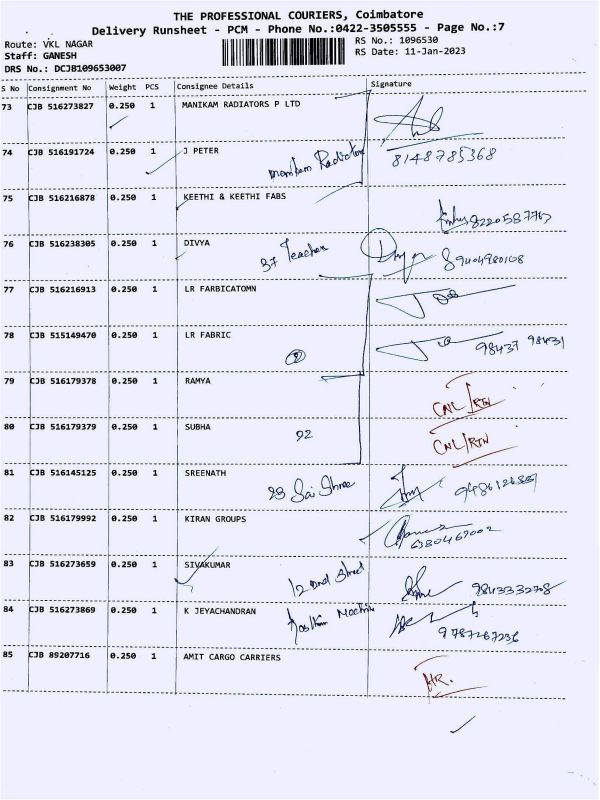 THE PROFESSIONAL COURIERS, Coimbatore
Delivery Runsheet - PCM - Phone No.:0422-3505555 - Page No.:7
Route: VKL NAGAR
RS No.: 1096530
Staff: GANESH
RS Date: 11-Jan-2023
DRS No.: DCJB109653007
S No Consignment No Weight PCS Consignee Details Signature
73 CJB 516273827 0.250 1 MANIKAM RADIATORS P LTD
74 CJB 516191724 0.250 1 J PETER manikam Radiator 8148785368
75 CJB 516216878 0.250 1 KEETHI & KEETHI FABS 8220587763
76 CJB 516238305 0.250 1 DIVYA 37 Teacher 89404980108
77 CJB 516216913 0.250 1 LR FARBICATOMN
78 CJB 515149470 0.250 1 LR FABRIC 2 98437 98431
79 CJB 516179378 0.250 1 RAMYA CNL/RTN
80 CJB 516179379 0.250 1 SUBHA 92 CNL/RTN
81 CJB 516145125 0.250 1 SREENATH 23 Sai Shree
82 CJB 516179992 0.250 1 KIRAN GROUPS 6380467002
83 CJB 516273659 0.250 1 SIVAKUMAR 12 2nd Street 9843332708
84 CJB 516273869 0.250 1 K JEYACHANDRAN 9787267236
85 CJB 89207716 0.250 1 AMIT CARGO CARRIERS